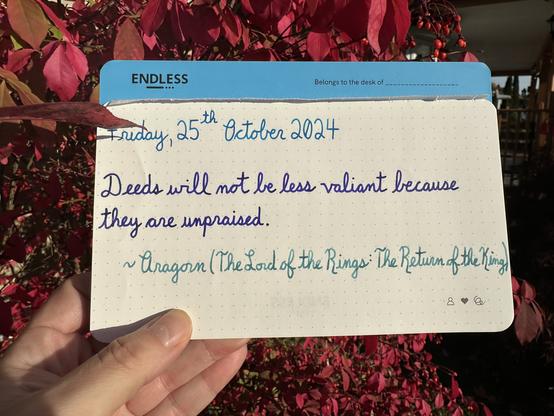 ENDLESS
Belongs to the desk of ____________________
Friday, 25th October 2024
Deeds will not be less valiant because
they are unpraised.
~ Aragorn (The Lord of the Rings: The Return of the King)